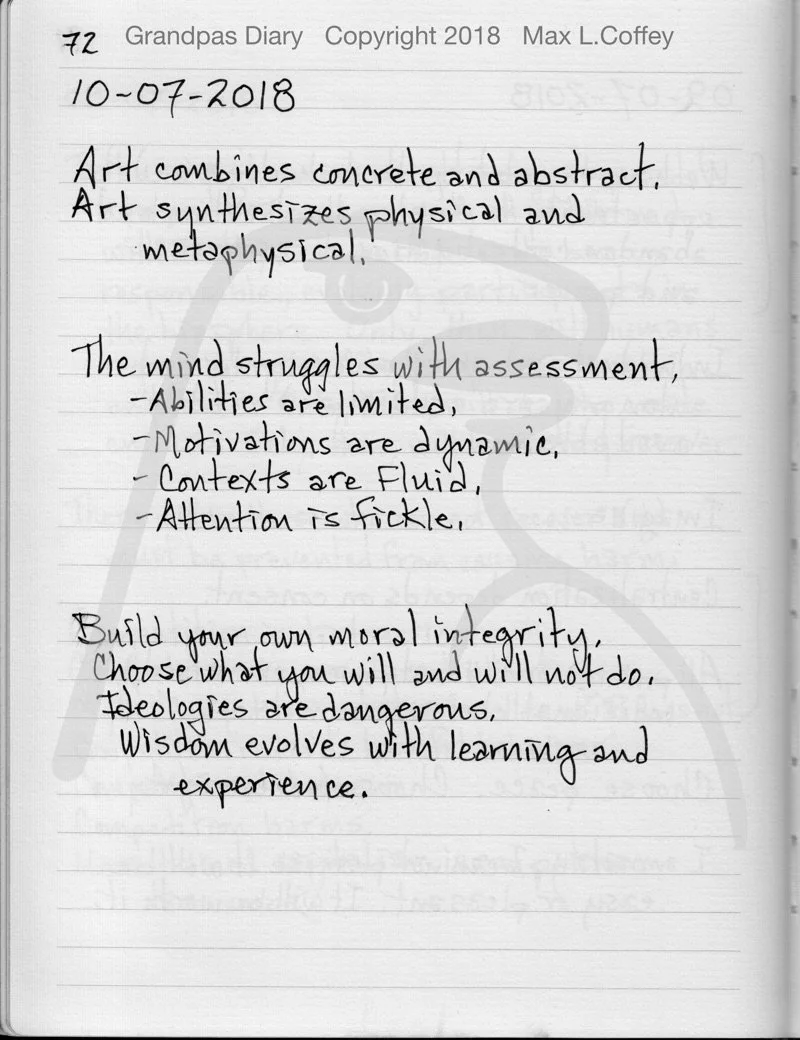 72 Grandpas Diary Copyright 2018 Max L.Coffey
10-07-2018
Art combines concrete and abstract.
Art synthesizes physical and
metaphysical.
The mind struggles with assessment,
-Abilities are limited,
-Motivations are dynamic,
- Contexts are Fluid,
-Attention is fickle,
Build your own moral integrity.
Choose what you will and will not do.
Ideologies are dangerous.
Wisdom evolves with learning and
experience.